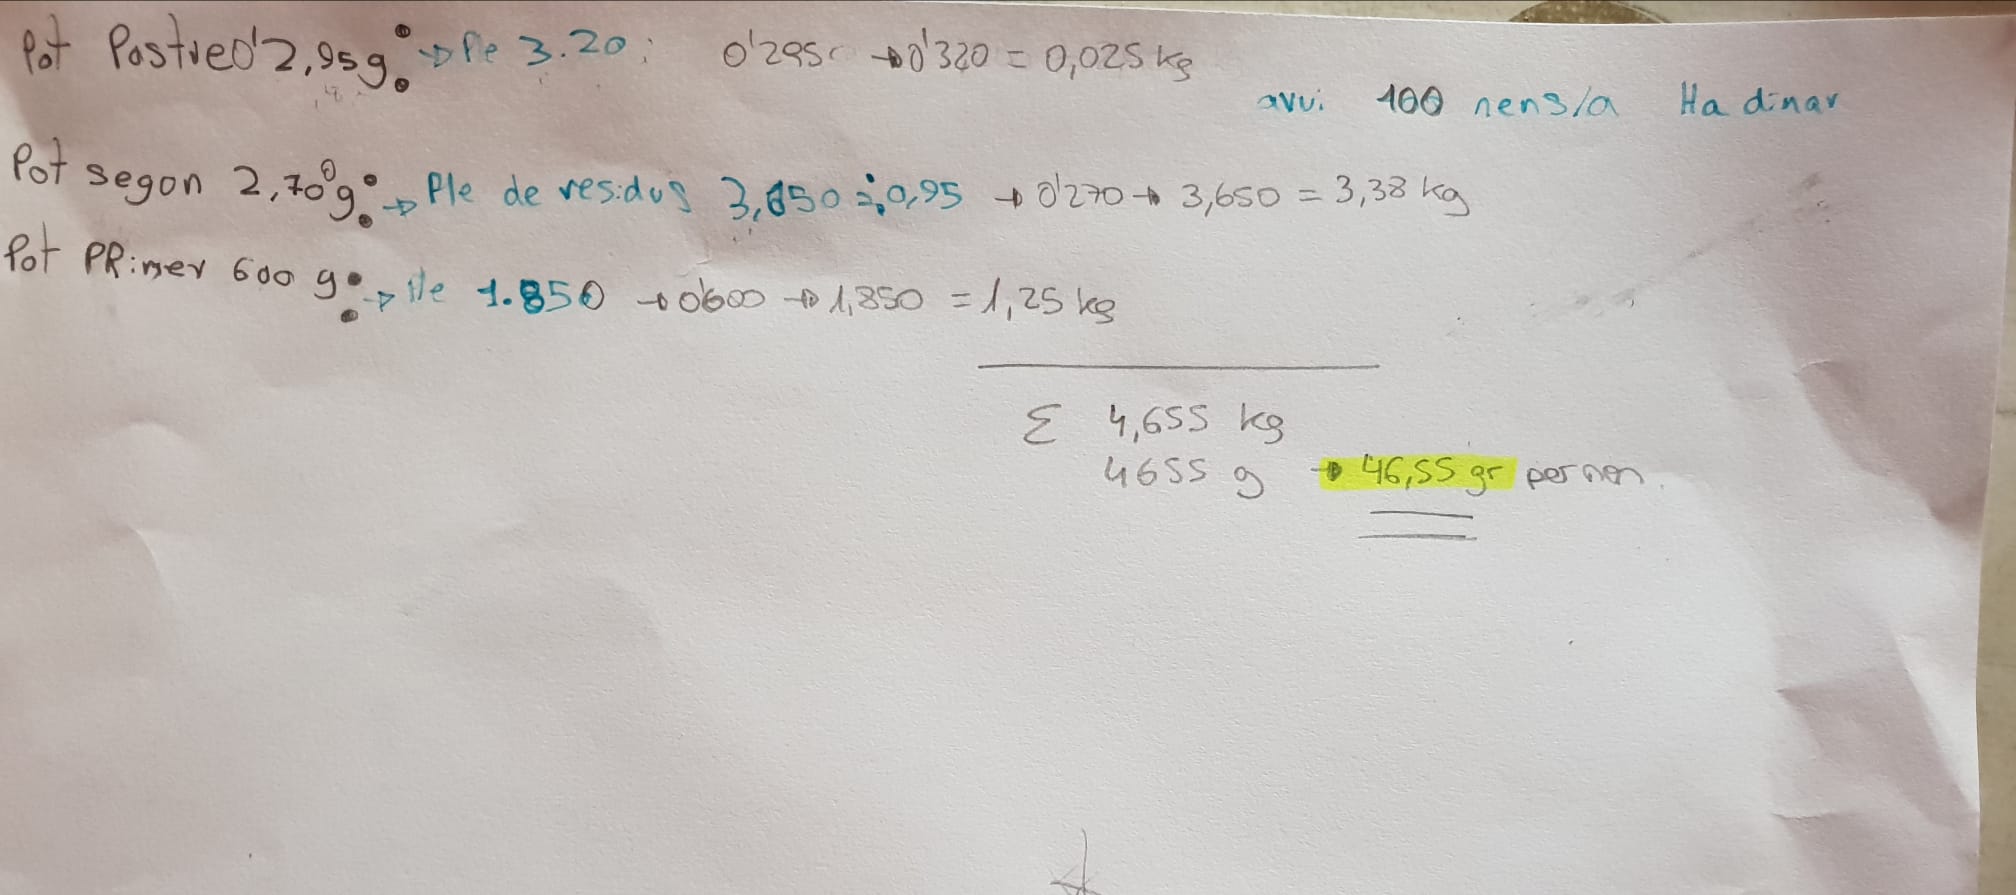 Pot Postre 0'2,95g: → Ple 3.20: 0'295 → 0'320 = 0,025 kg
avui 100 nens/a Ha dinar
Pot segon 2,700g: → Ple de residus 3,650 = 0,95 → 0'270 → 3,650 = 3,38 kg
Pot PRimer 600 g: → Ple 1.850 → 0'600 → 1,850 = 1,25 kg
Σ 4,655 kg
4655 g → 46,55 gr per nen.